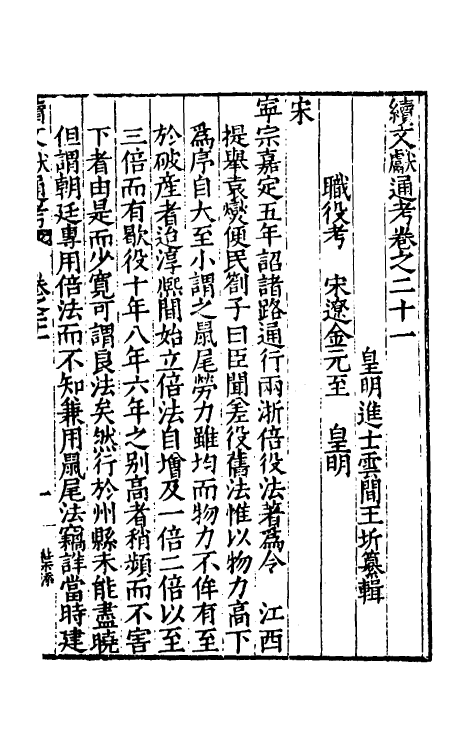 續文獻通考卷之二十一
皇明進士雲間王圻纂輯
職役考　宋遼金元至　皇明
宋
寧宗嘉定五年詔諸路通行兩浙倍役法著為令　江西
提舉袁爕便民劄子曰臣聞差役舊法惟以物力高下
為序自大至小謂之鼠尾勞力雖均而物力不侔有至
於破産者迨淳熈間始立倍法自增及一倍二倍以至
三倍而有歇役十年八年六年之别高者稍頻而不害
下者由是而少寛可謂良法矣然行於州縣未能盡曉
但謂朝廷專用倍法而不知兼用鼠尾法竊詳當時建
續文獻通考　卷之二十一　一